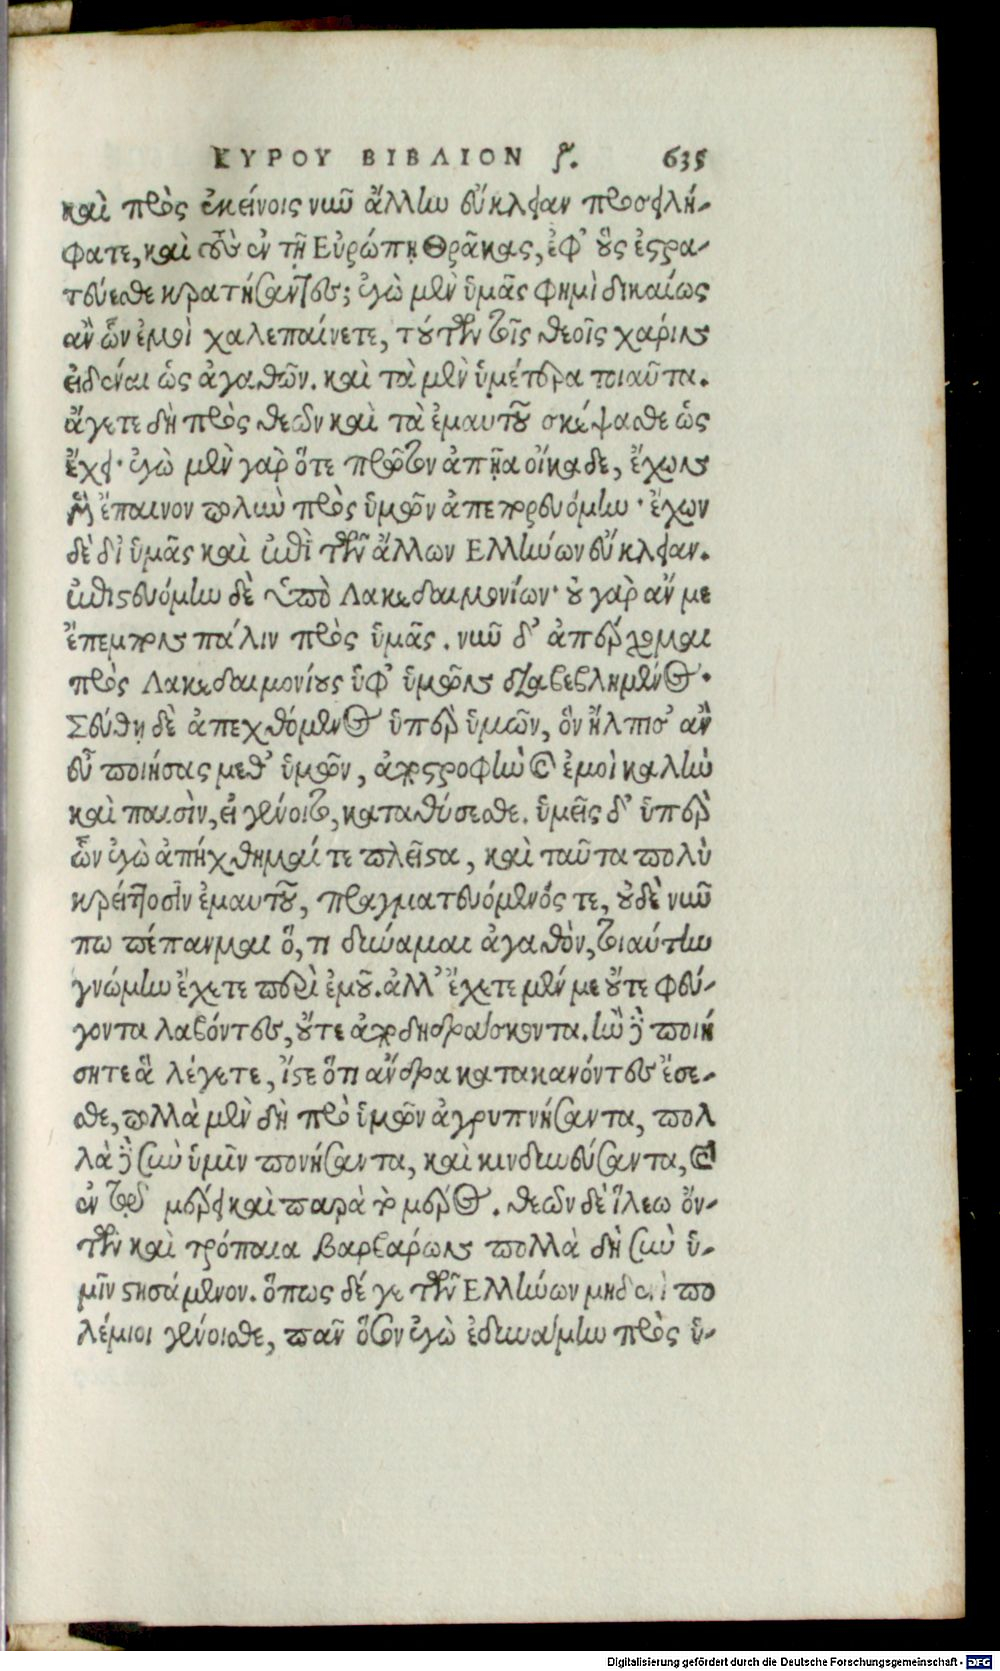 ΚΥΡΟΥ ΒΙΒΛΙΟΝ ζ. 635
καὶ πρὸς ἐκείνοις νῦν ἄλλην εὔκλειαν προσειλή-
φατε, καὶ τοὺς ἐν τῇ Εὐρώπῃ Θρᾶκας, ἐφ' οὓς ἐστρα-
τεύεσθε κρατήσαντες; ἐγὼ μὲν ὑμᾶς φημὶ δικαίως
ἂν ὧν ἐμοὶ χαλεπαίνετε, τούτων τοῖς θεοῖς χάριν
εἰδέναι ὡς ἀγαθῶν. καὶ τὰ μὲν ὑμέτερα τοιαῦτα.
ἄγετε δὴ πρὸς θεῶν καὶ τὰ ἐμαυτοῦ σκέψασθε ὡς
ἔχει· ἐγὼ μὲν γὰρ ὅτε πρῶτον ἀπῇα οἴκαδε, ἔχων
μὲν ἔπαινον πολὺν πρὸς ὑμῶν ἀπεπορευόμην· ἔχων
δὲ δι' ὑμᾶς καὶ ὑπὸ τῶν ἄλλων Ελλήνων εὔκλειαν.
ἐπιστευόμην δὲ ὑπὸ Λακεδαιμονίων· οὐ γὰρ ἄν με
ἔπεμπον πάλιν πρὸς ὑμᾶς. νῦν δ' ἀπέρχομαι
πρὸς Λακεδαιμονίους ὑφ' ὑμῶν διαβεβλημένος·
Σεύθῃ δὲ ἀπεχθόμενος ὑπὲρ ὑμῶν, ὃν ἤλπισ' ἂν
εὖ ποιήσας μεθ' ὑμῶν, ἀποστροφὴν καὶ ἐμοὶ καλὴν
καὶ παισὶν, εἰ γένοιτο, καταθύσεσθε. ὑμεῖς δ' ὑπὲρ
ὧν ἐγὼ ἀπήχθημαί τε πλεῖστα, καὶ ταῦτα πολὺ
κρείττοσιν ἐμαυτοῦ, πραγματευόμενός τε, οὐδὲ νῦν
πω πέπαυμαι ὅ, τι δύναμαι ἀγαθὸν, τοιαύτην
γνώμην ἔχετε περὶ ἐμοῦ. ἀλλ' ἔχετε μέν με οὔτε φεύ-
γοντα λαβόντες, οὔτε ἀποδιδράσκοντα. ἢν δὲ ποιή
σητε ἃ λέγετε, ἴστε ὅτι ἄνδρα κατακανόντες ἔσε-
σθε, πολλὰ μὲν δὴ πρὸ ὑμῶν ἀγρυπνήσαντα, πολ
λὰ δὲ σὺν ὑμῖν πονήσαντα, καὶ κινδυνεύσαντα, καὶ
ἐν τῷ μέρει καὶ παρὰ τὸ μέρος. θεῶν δὲ ἵλεω ὄν-
των καὶ τρόπαια βαρβάρων πολλὰ δὴ σὺν ὑ-
μῖν στησάμενον. ὅπως δέ γε τῶν Ελλήνων μηδενὶ πο
λέμιοι γένοισθε, πᾶν ὅσον ἐγὼ ἐδυνάμην πρὸς ὑ-
Digitalisierung gefördert durch die Deutsche Forschungsgemeinschaft - DFG